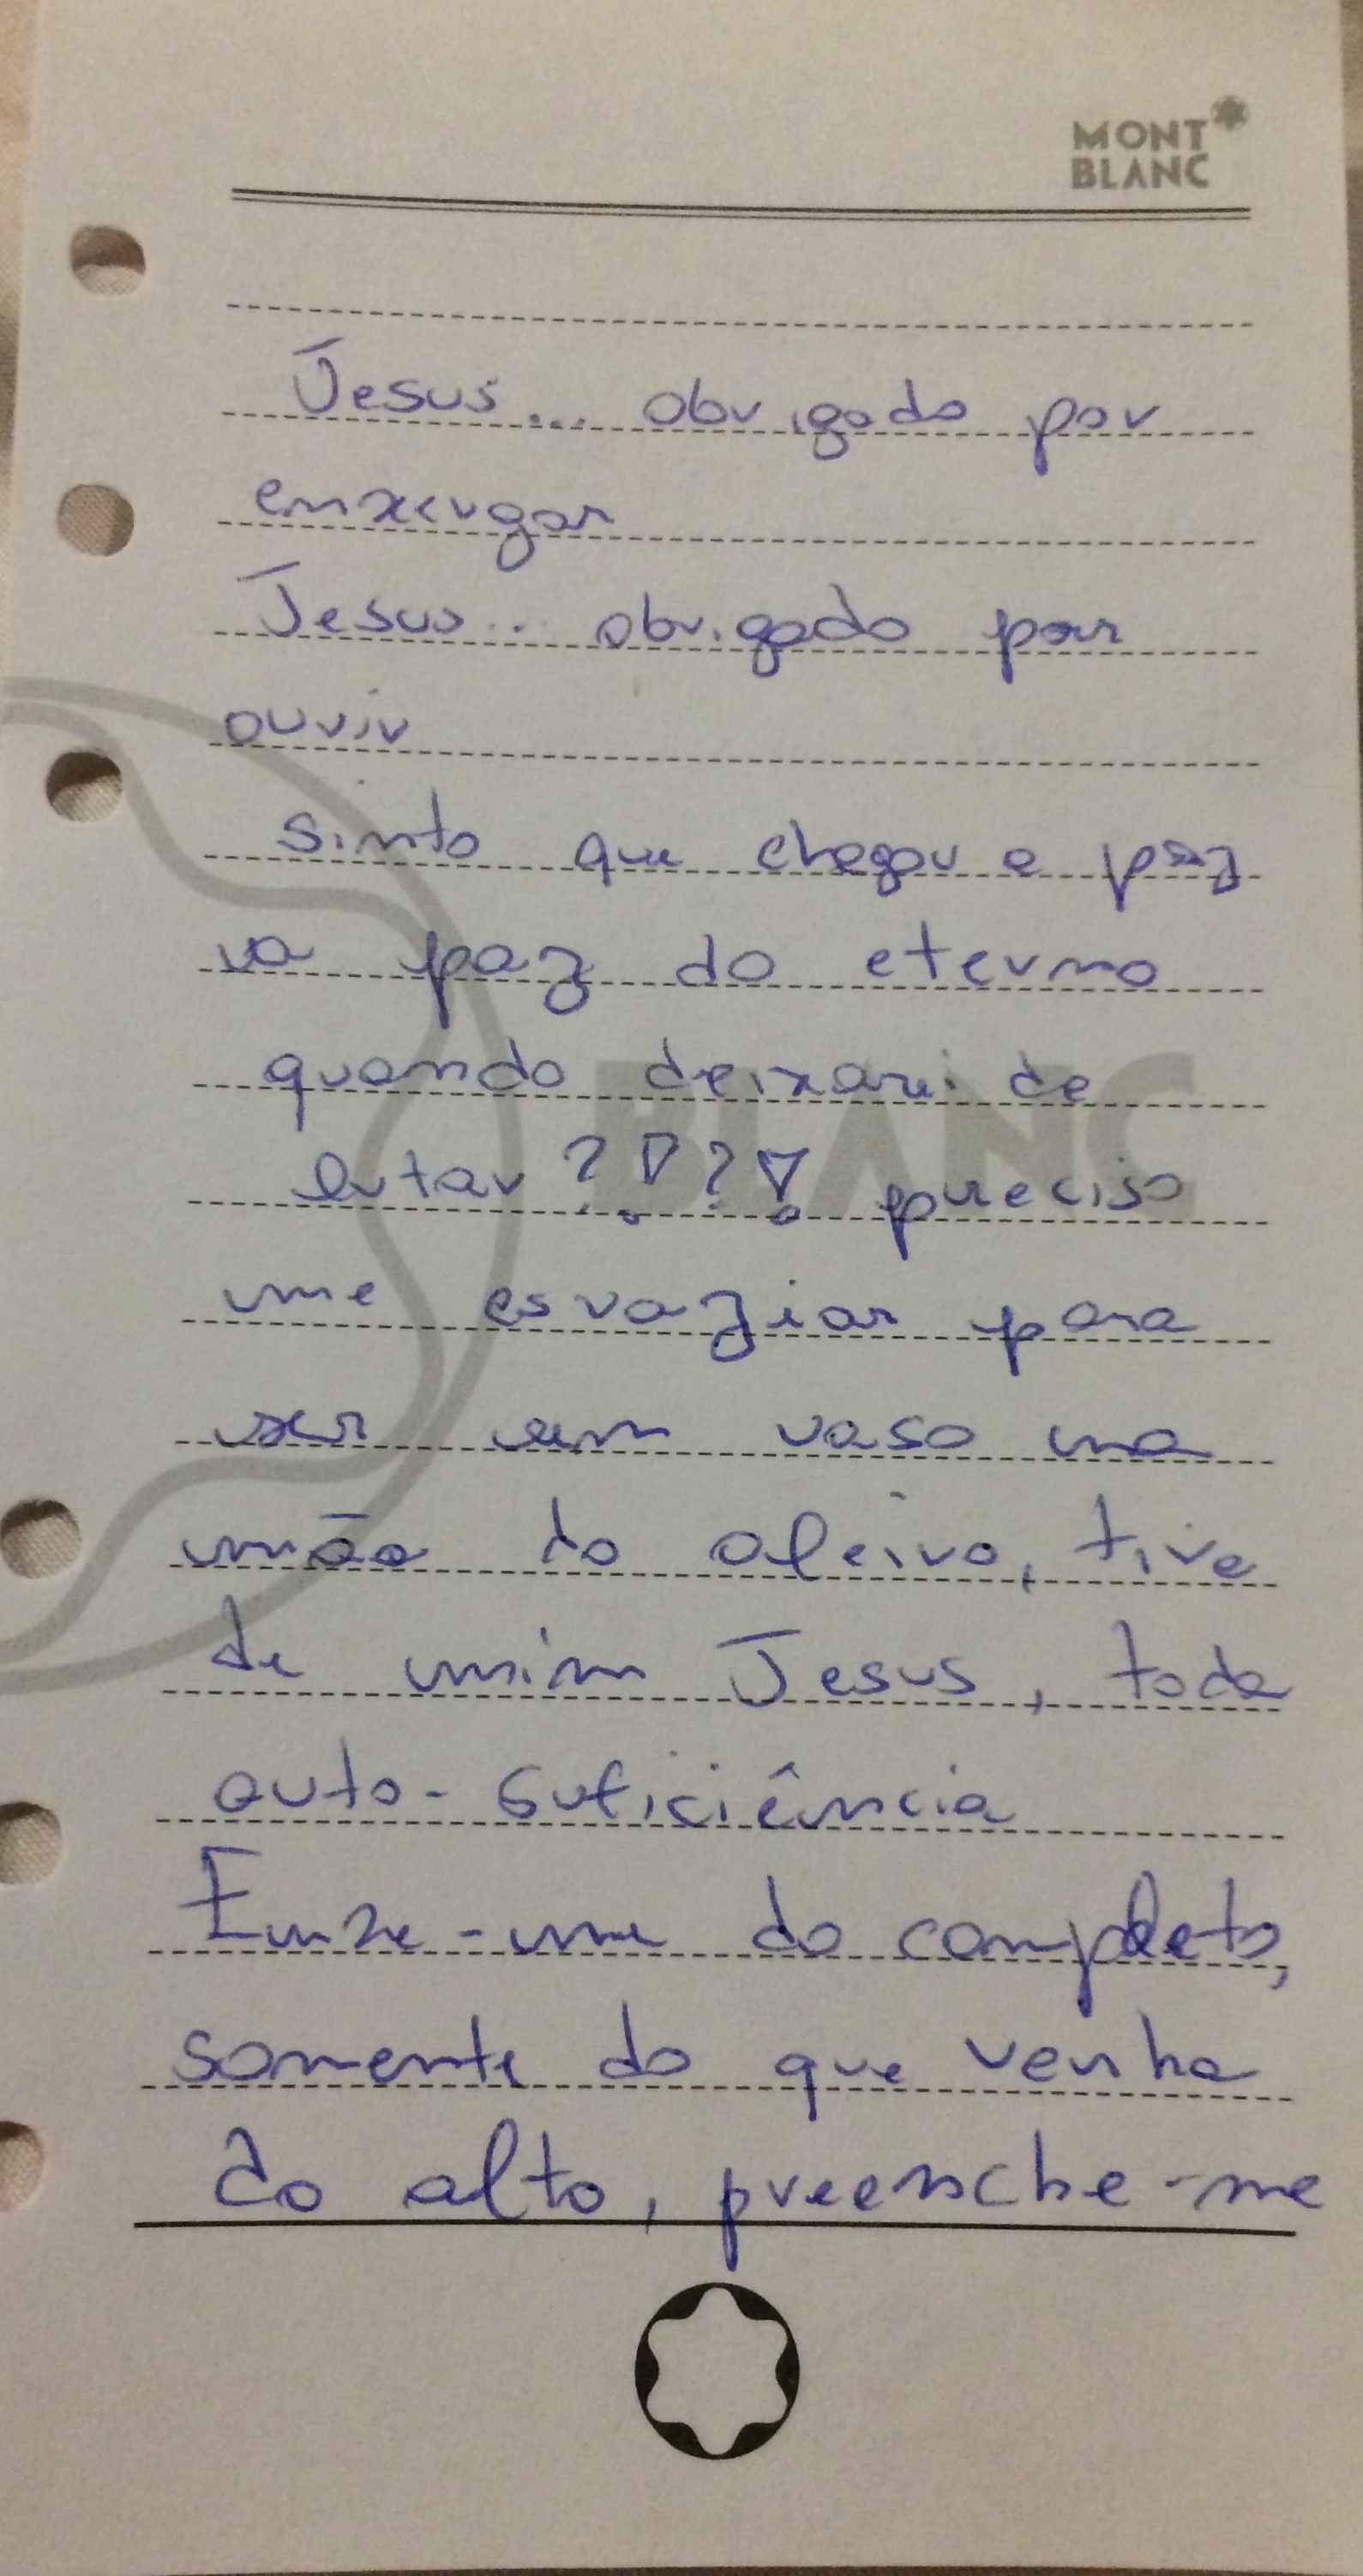 MONT
BLANC
Jesus... obrigado por
enxugar
Jesus... obrigado por
ouvir
sinto que chegou a paz
a paz do eterno
quando deixarei de
lutar?!?! preciso
me esvaziar para
ser um vaso na
mão do oleiro, tire
de mim Jesus, toda
auto-suficiência
do completo,
somente do que venha
do alto, preenche-me
BLANC